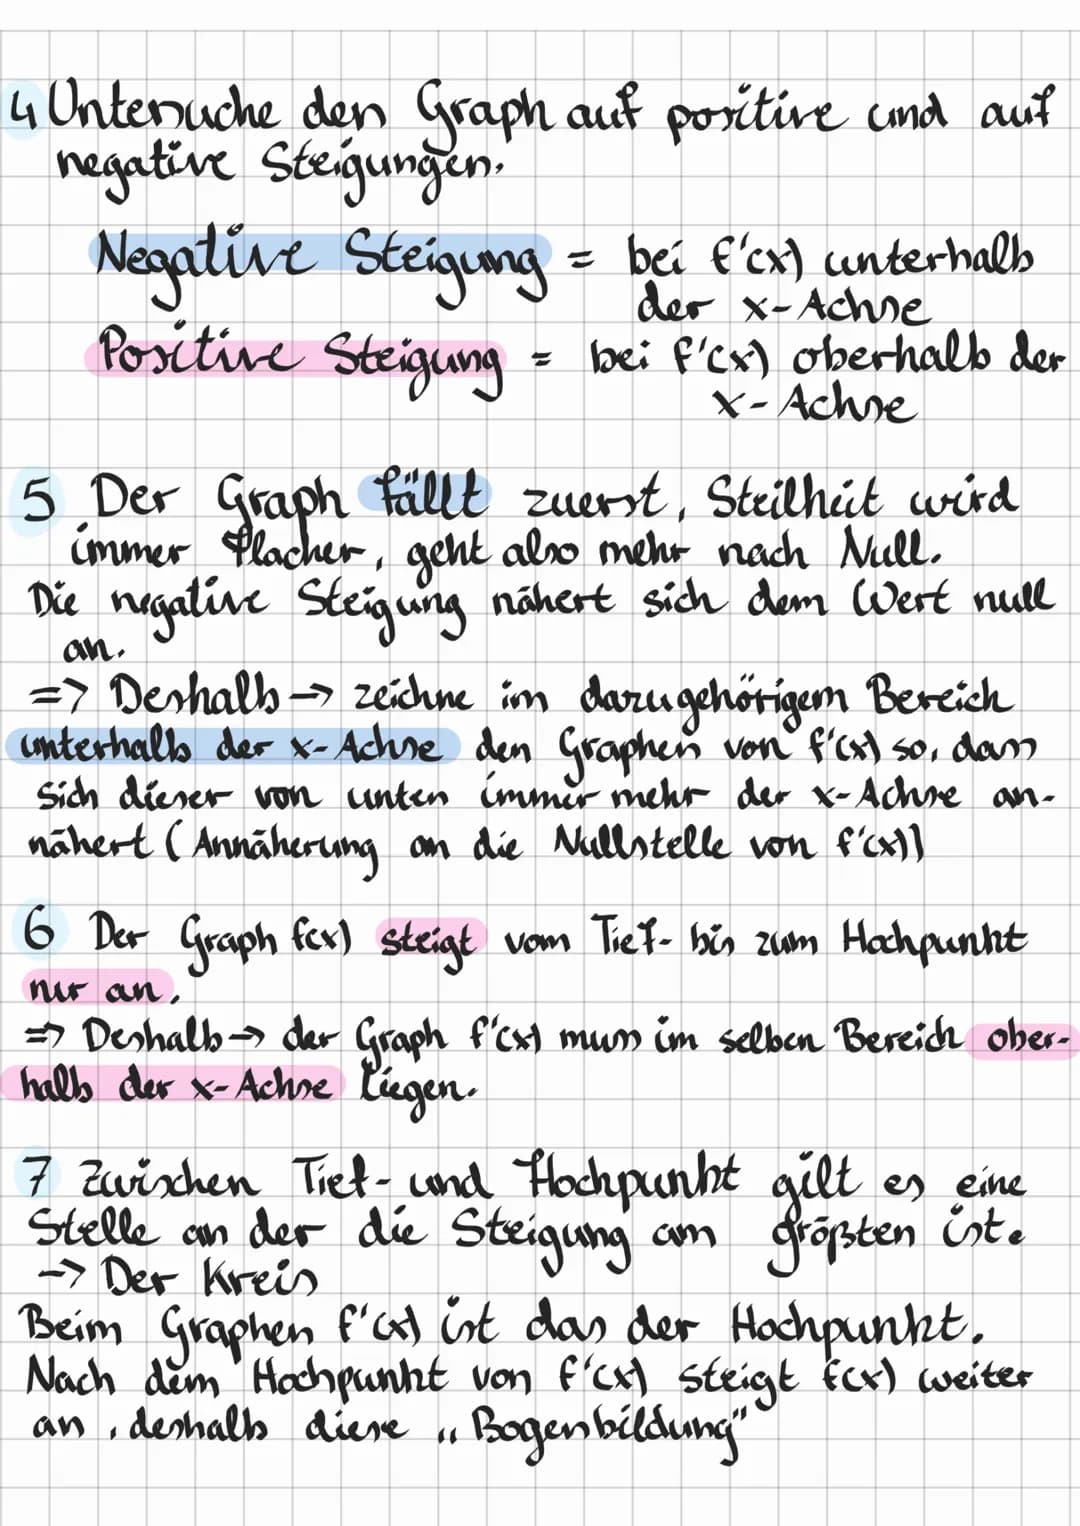 4 Untersuche den Graph auf positive und auf
negative Steigungen.
Negative Steigung = bei f'(x) unterhalb
der x-Achse
Positive Steigung = bei f'(x) oberhalb der
x-Achse
5 Der Graph fällt zuerst, Steilheit wird
immer flacher, geht also mehr nach Null.
Die negative Steigung nähert sich dem Wert null
an.
=> Deshalb → zeichne im dazugehörigem Bereich
unterhalb der x-Achse den Graphen von f'(x) so, dass
sich dieser von unten immer mehr der x-Achse an-
nähert (Annäherung an die Nullstelle von f'(x))
6 Der Graph f(x) steigt vom Tief- bis zum Hochpunkt
nur an.
=> Deshalb → der Graph f'(x) muss im selben Bereich ober-
halb der x-Achse liegen.
7 Zwischen Tief- und Hochpunkt gilt es eine
Stelle an der die Steigung am größten ist.
-> Der Kreis
Beim Graphen f'(x) ist das der Hochpunkt.
Nach dem Hochpunkt von f'(x) steigt f(x) weiter
an, deshalb diese „Bogenbildung"